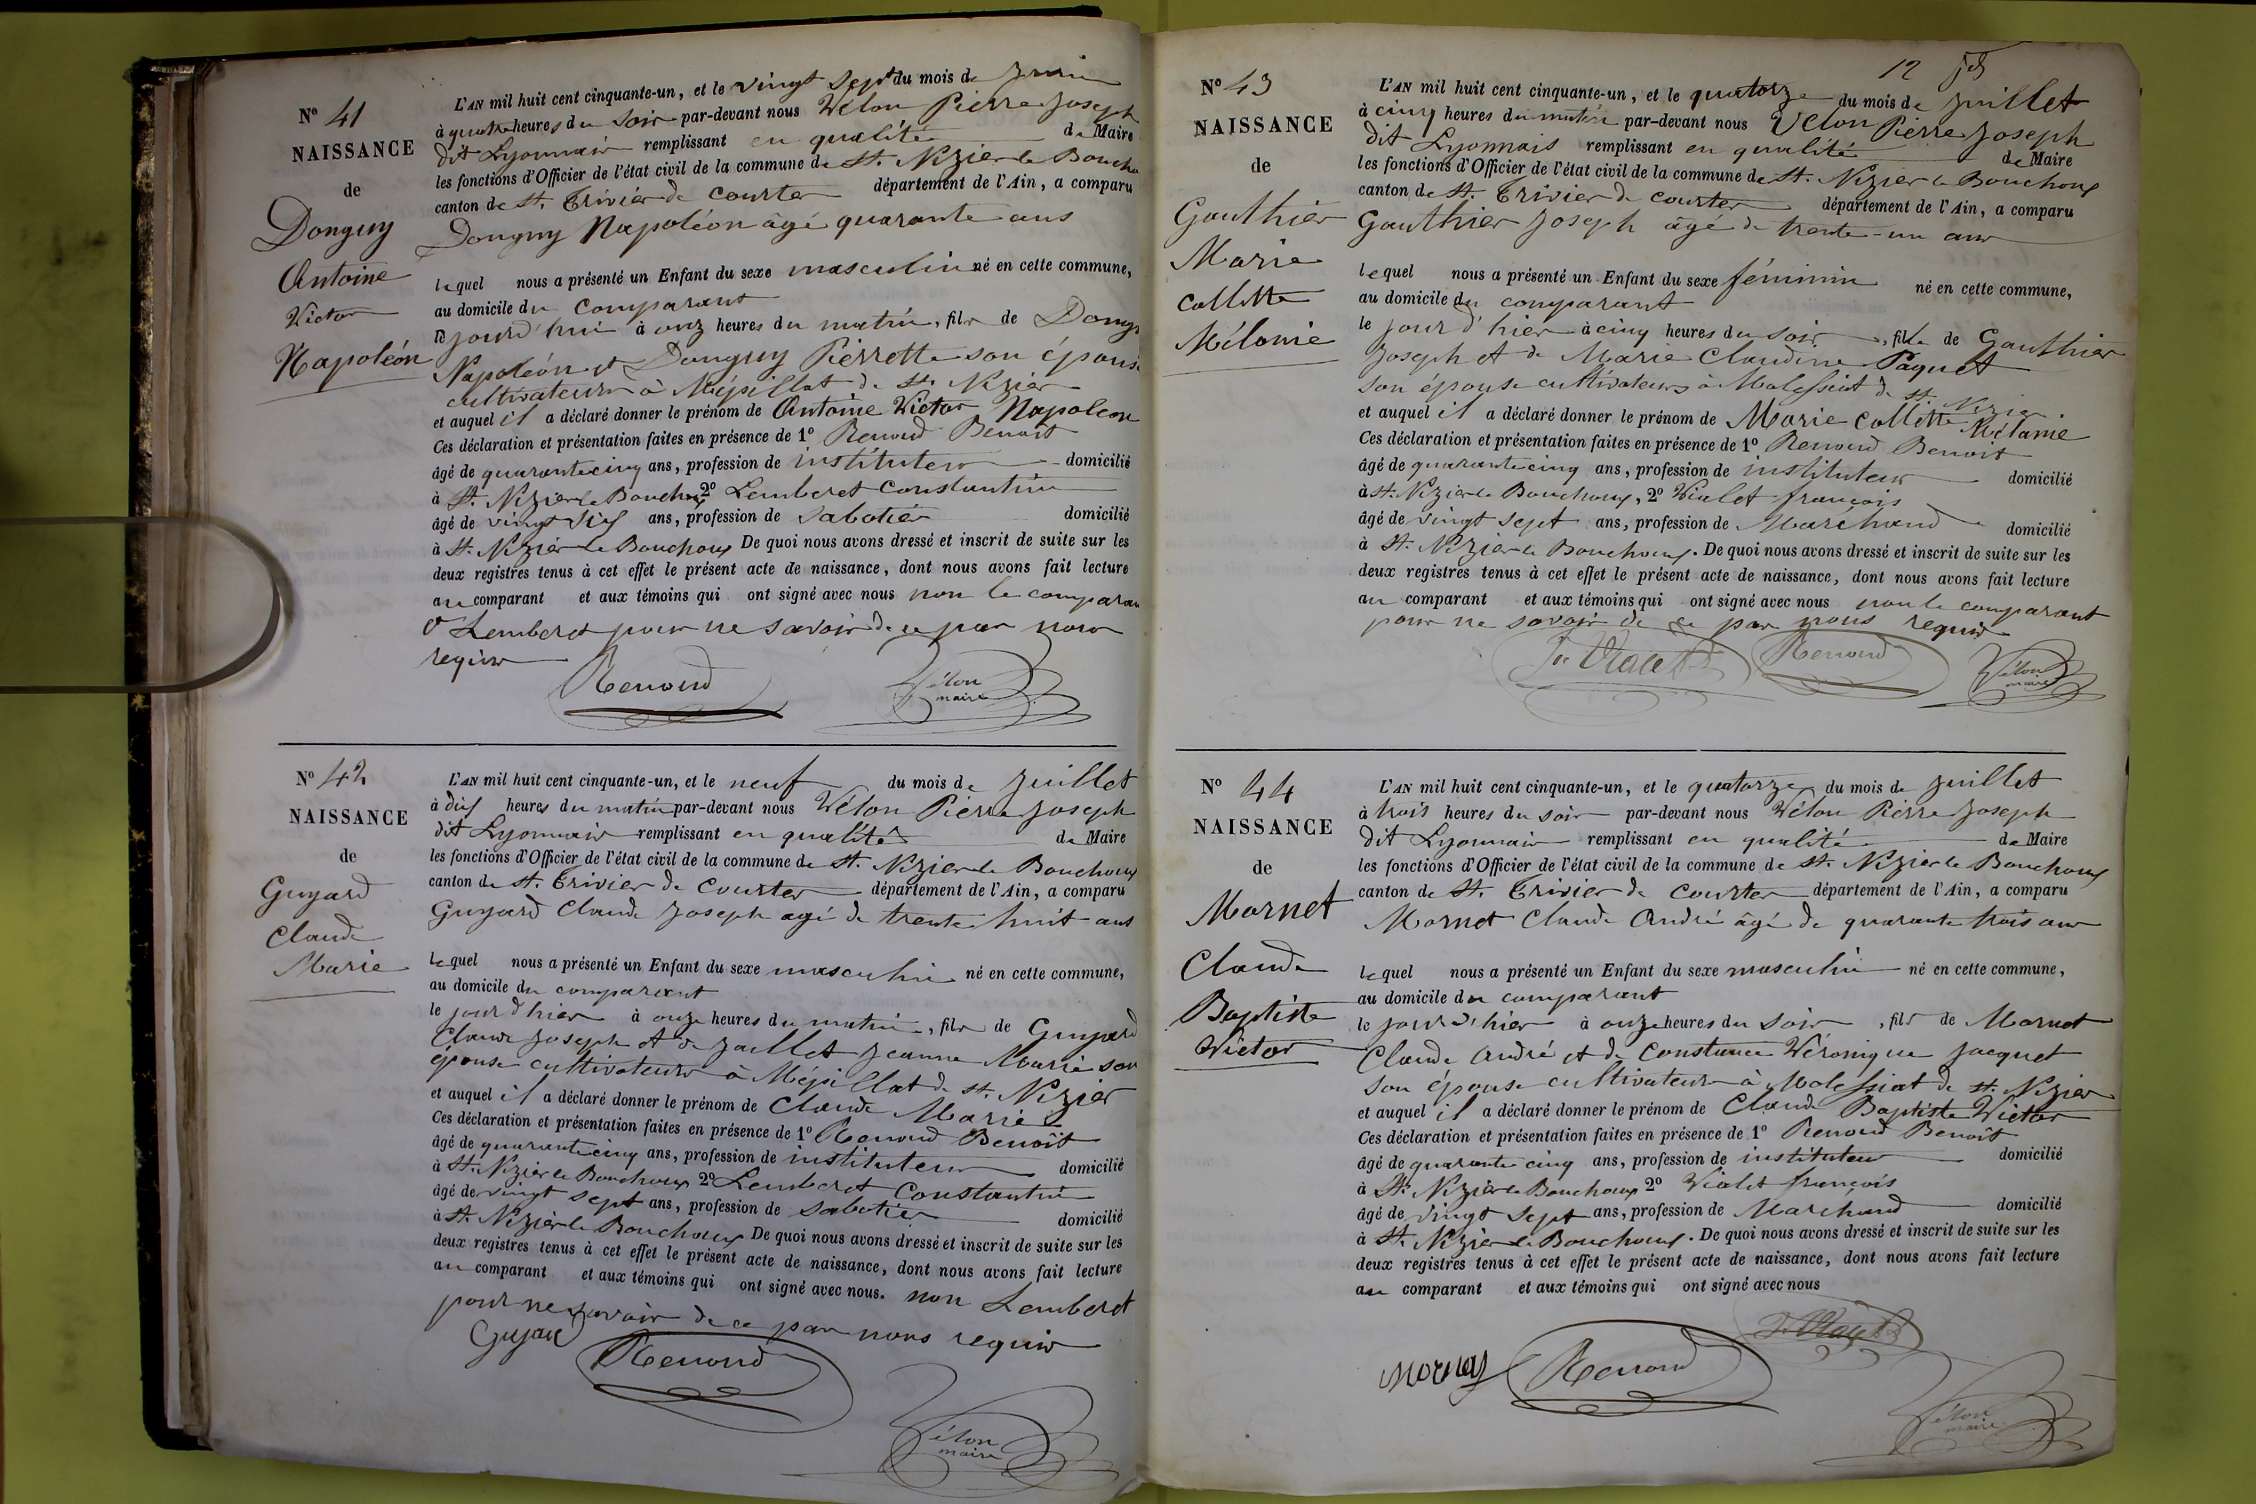 N° 41
NAISSANCE
de
Donguy
Antoine
Victor
Napoléon
L'AN mil huit cent cinquante-un, et le vingt sept du mois de Juin
à quatre heures du Soir par-devant nous Vélon Pierre Joseph
dit Lyonnais remplissant en qualité de Maire
les fonctions d'Officier de l'état civil de la commune de St. Nizier le Bouchoux
canton de St. Trivier de Courtes département de l'Ain, a comparu
Donguy Napoléon âgé quarante ans
lequel nous a présenté un Enfant du sexe masculin né en cette commune,
au domicile du Comparant
le jourd'hui à onze heures du matin, fils de Donguy
Napoléon et Donguy Pierrette son épouse
cultivateurs à Mépillat de St. Nizier
et auquel il a déclaré donner le prénom de Antoine Victor Napoléon
Ces déclaration et présentation faites en présence de 1° Renoud Benoit
âgé de quarante cinq ans, profession de instituteur domicilié
à St. Nizier le Bouchoux 2° Lemberet Constantin
âgé de vingt six ans, profession de Sabotier domicilié
à St. Nizier le Bouchoux De quoi nous avons dressé et inscrit de suite sur les
deux registres tenus à cet effet le présent acte de naissance, dont nous avons fait lecture
au comparant et aux témoins qui ont signé avec nous non le comparant
et Lemberet pour ne savoir de ce par nous
requis
Renoud
Vélon
maire
N° 42
NAISSANCE
de
Guyard
Claude
Marie
L'AN mil huit cent cinquante-un, et le neuf du mois de Juillet
à dix heures du matin par-devant nous Vélon Pierre Joseph
dit Lyonnais remplissant en qualité de Maire
les fonctions d'Officier de l'état civil de la commune de St. Nizier le Bouchoux
canton de St. Trivier de Courtes département de l'Ain, a comparu
Guyard Claude Joseph agé de trente huit ans
lequel nous a présenté un Enfant du sexe masculin né en cette commune,
au domicile du comparant
le jour d'hier à onze heures du matin, fils de Guyard
Claude Joseph et de Jaillet Jeanne Marie son
épouse cultivateurs à Mépillat de St. Nizier
et auquel il a déclaré donner le prénom de Claude Marie
Ces déclaration et présentation faites en présence de 1° Renoud Benoît
âgé de quarante cinq ans, profession de instituteur domicilié
à St. Nizier le Bouchoux 2° Lemberet Constantin
âgé de vingt sept ans, profession de Sabotier domicilié
à St. Nizier le Bouchoux De quoi nous avons dressé et inscrit de suite sur les
deux registres tenus à cet effet le présent acte de naissance, dont nous avons fait lecture
au comparant et aux témoins qui ont signé avec nous. non Lemberet
pour ne savoir de ce par nous requis
Guyard
Renoud
Vélon
maire
12
N° 43
NAISSANCE
de
Gauthier
Marie
Collette
Mélanie
L'AN mil huit cent cinquante-un, et le quatorze du mois de Juillet
à cinq heures du matin par-devant nous Vélon Pierre Joseph
dit Lyonnais remplissant en qualité de Maire
les fonctions d'Officier de l'état civil de la commune de St. Nizier le Bouchoux
canton de St. Trivier de Courtes département de l'Ain, a comparu
Gauthier Joseph âgé de trente-un ans
lequel nous a présenté un Enfant du sexe féminin né en cette commune,
au domicile du comparant
le jour d'hier à cinq heures du soir, fille de Gauthier
Joseph et de Marie Claudine Paquet
son épouse cultivateurs à Molessiat de St. Nizier
et auquel il a déclaré donner le prénom de Marie Collette Mélanie
Ces déclaration et présentation faites en présence de 1° Renoud Benoit
âgé de quarante cinq ans, profession de instituteur domicilié
à St. Nizier le Bouchoux, 2° Violet françois
âgé de vingt sept ans, profession de Marchand domicilié
à St. Nizier le Bouchoux. De quoi nous avons dressé et inscrit de suite sur les
deux registres tenus à cet effet le présent acte de naissance, dont nous avons fait lecture
au comparant et aux témoins qui ont signé avec nous non le comparant
pour ne savoir de ce par nous requis
Renoud
Vélon
maire
N° 44
NAISSANCE
de
Mornet
Claude
Baptiste
Victor
L'AN mil huit cent cinquante-un, et le quatorze du mois de Juillet
à trois heures du soir par-devant nous Vélon Pierre Joseph
dit Lyonnais remplissant en qualité de Maire
les fonctions d'Officier de l'état civil de la commune de St. Nizier le Bouchoux
canton de St. Trivier de Courtes département de l'Ain, a comparu
Mornet Claude André âgé de quarante trois ans
lequel nous a présenté un Enfant du sexe masculin né en cette commune,
au domicile du comparant
le jour d'hier à onze heures du soir, fils de Mornet
Claude André et de Constance Véronique Jacquet
son épouse cultivateurs à Molessiat de St. Nizier
et auquel il a déclaré donner le prénom de Claude Baptiste Victor
Ces déclaration et présentation faites en présence de 1° Renoud Benoît
âgé de quarante cinq ans, profession de instituteur domicilié
à St. Nizier le Bouchoux 2° Violet françois
âgé de vingt sept ans, profession de Marchand domicilié
à St. Nizier le Bouchoux. De quoi nous avons dressé et inscrit de suite sur les
deux registres tenus à cet effet le présent acte de naissance, dont nous avons fait lecture
au comparant et aux témoins qui ont signé avec nous
Renoud
Vélon
maire